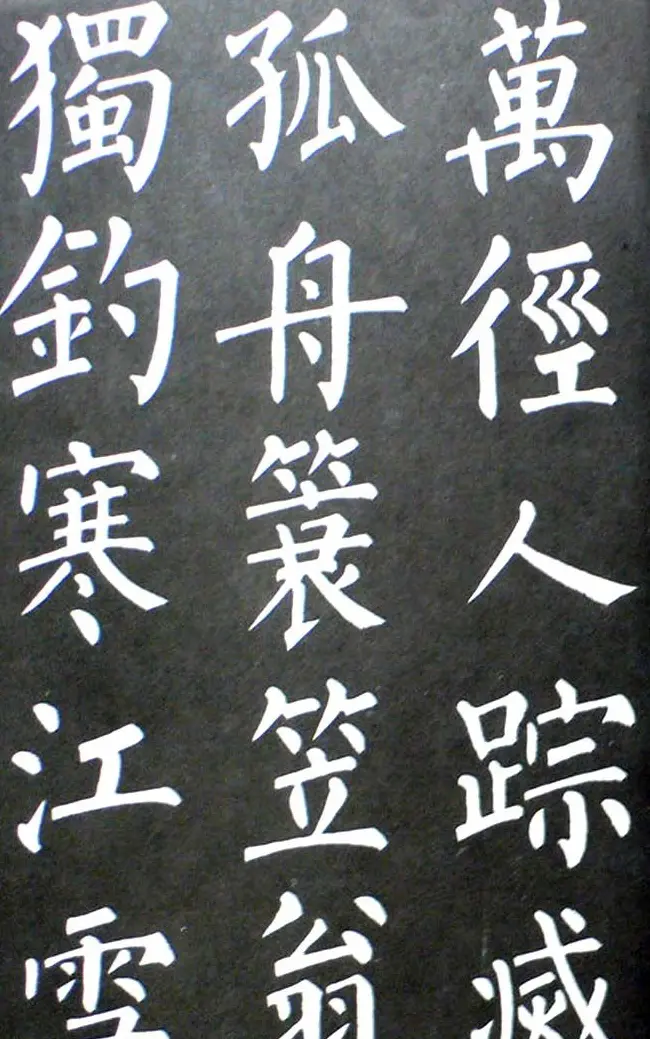 萬徑人踪滅
孤舟簑笠翁
獨釣寒江雪